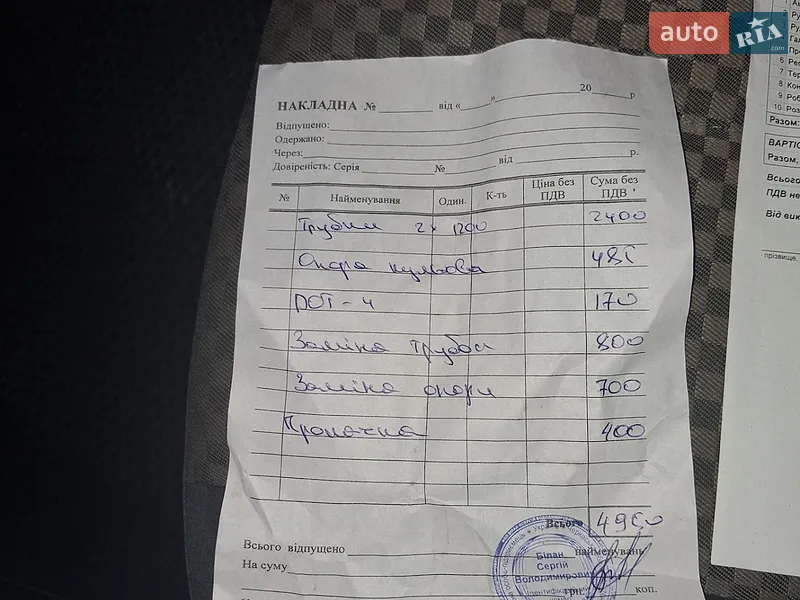 auto RIA .com
НАКЛАДНА № від « » 20 р
Відпущено:
Одержано:
Через:
Довіреність: Серія № від р.
№ Найменування Один. К-ть Ціна без ПДВ Сума без ПДВ
Трубки 2 х 1200 2400
Опора кульова 485
DOT - 4 170
Заміна трубок 800
Заміна опори 700
Прокачка 400
Всього 4950
Всього відпущено найменувань
На суму
грн. коп.
Білан
Сергій
Володимирович
6 Рес
7 Тер
8 Кон
9 Роб
10 Роз
Разом:
ВАРТІС
Разом,
Всього
ПДВ не
Від вик
прізвище,